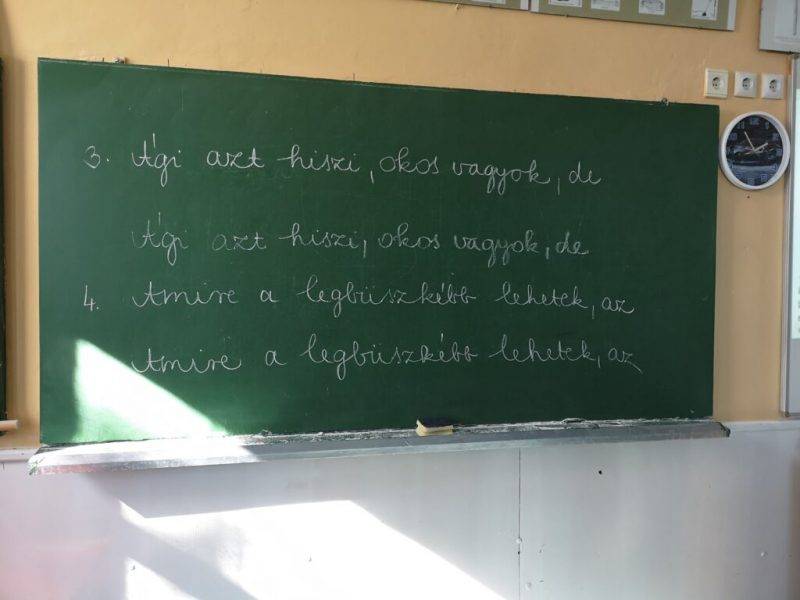 3. Ági azt hiszi, okos vagyok, de
Ági azt hiszi, okos vagyok, de
4. Amire a legbüszkébb lehetek, az
Amire a legbüszkébb lehetek, az